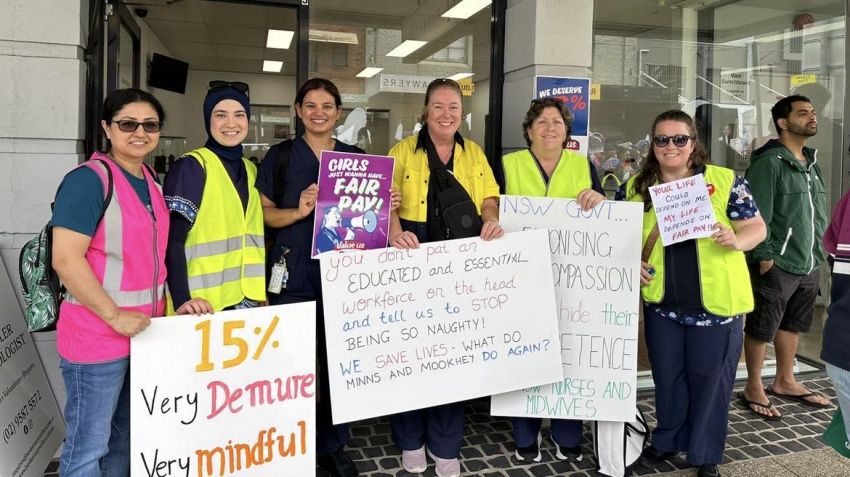 LAWYERS
Main
Switchboard
WE DESERVE
%
GIRLS
JUST WANNA HAVE...
FAIR
PAY!
Value us!
YOUR LIFE
COULD
DEPEND ON ME
MY LIFE
DEPENDS ON
FAIR PAY!!
NSW GOVT...
ONISING
OMPASSION
hide their
PETENCE
NURSES AND
MIDWIVES
you don't pat an
EDUCATED and ESSENTIAL
workforce on the head
and tell us to STOP
BEING SO NAUGHTY!
WE SAVE LIVES - WHAT DO
MINNS AND MOOKHEY DO AGAIN?
15%
Very Demure
Very mindful
(02) 9587 5572